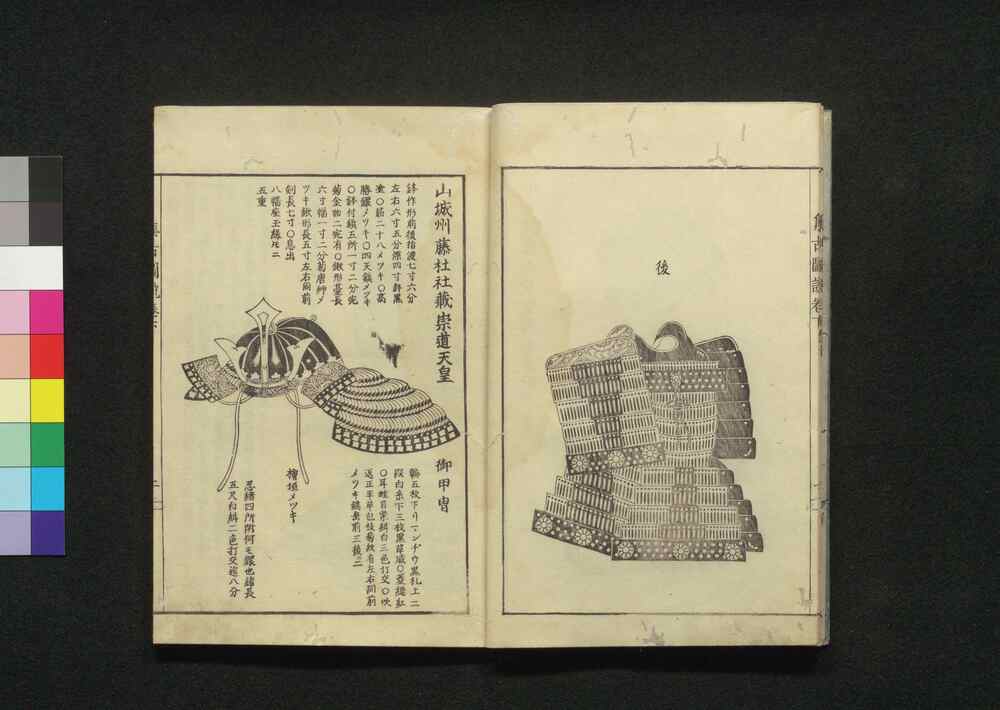 後
山城州藤杜社藏崇道天皇
御甲冑
鉢作形前後指渡七寸六分
左右六寸五分深四寸餘黒
塗〇筋二十八メツキ〇高
勝鐶メツキ〇四天鋲メツキ
〇鉢付鋲五所一寸二分完
菊金物二完有〇鍬形臺長
六寸幅一寸二分菊唐艸メ
ツキ鍬形長五寸左右同前
剣長七寸〇息出
八幅座玉縁モニ
五重
𩊱五枚下リマンヂウ黒札上二
段白糸下三枚黒韋威〇菱縫紅
〇耳畦目紫紺白三色打交〇吹
返正平革包枝菊紋有左右同前
メツキ鋲長前三後二
檜垣メツキ
忍緒四所附何モ鐶也緒長
五尺白紺二色打交徑八分